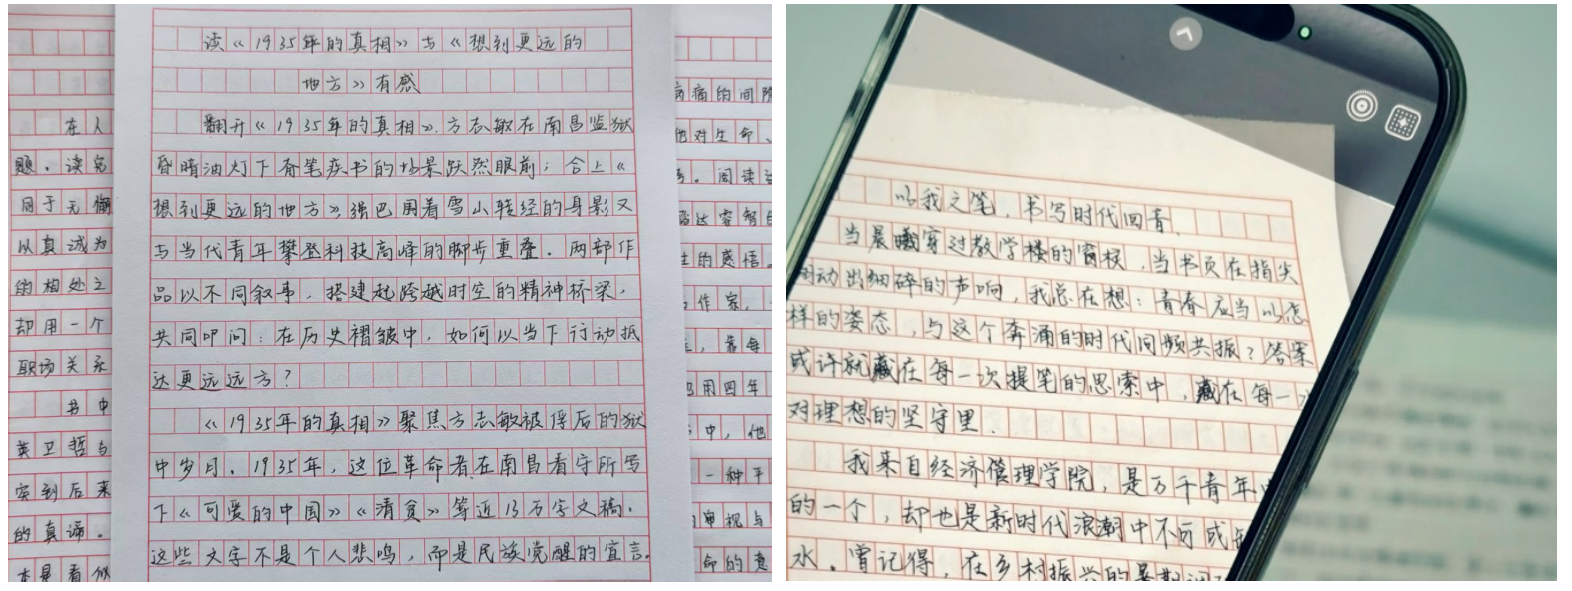 读《1935年的真相》与《想到更远的
地方》有感
翻开《1935年的真相》,方志敏在南昌监狱
昏暗油灯下奋笔疾书的场景跃然眼前；合上《
想到更远的地方》,强巴围着雪山转经的身影又
与当代青年攀登科技高峰的脚步重叠。两部作
品以不同叙事，搭建起跨越时空的精神桥梁，
共同叩问：在历史褶皱中，如何以当下行动抵
达更远远方？
《1935年的真相》聚焦方志敏被俘后的狱
中岁月。1935年，这位革命者在南昌看守所写
下《可爱的中国》《清贫》等近13万字文稿。
这些文字不是个人悲鸣，而是民族觉醒的宣言。
在人
题。读完
同于无
以真诚为
的相处之
却用一个
职场关系
书中
英卫哲与
突到后来
的真谛。
本是看似
病痛的间隙
他对生命、
。阅读
达睿智的
生的感悟。
作家，
，靠每
用四年
中，他
一种平
审视与
命的意
以我之笔，书写时代回音
当晨曦穿过教学楼的窗棂，当书页在指尖
翻动出细碎的声响，我总在想：青春应当以怎
样的姿态，与这个奔涌的时代同频共振？答案
或许就藏在每一次提笔的思索中，藏在每一次
对理想的坚守里。
我来自经济管理学院，是万千青年中
的一个，却也是新时代浪潮中不可或缺
水。曾记得，在乡村振兴的暑期